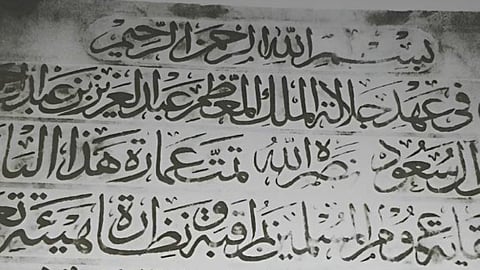 بسم الله الرحمن الرحيم
في عهد جلالة الملك المعظم عبدالعزيز بن عبدالرحمن
السعود نصره الله تمت عمارة هذا
عموم المسلمين بمراقبة ونظارة هيئة